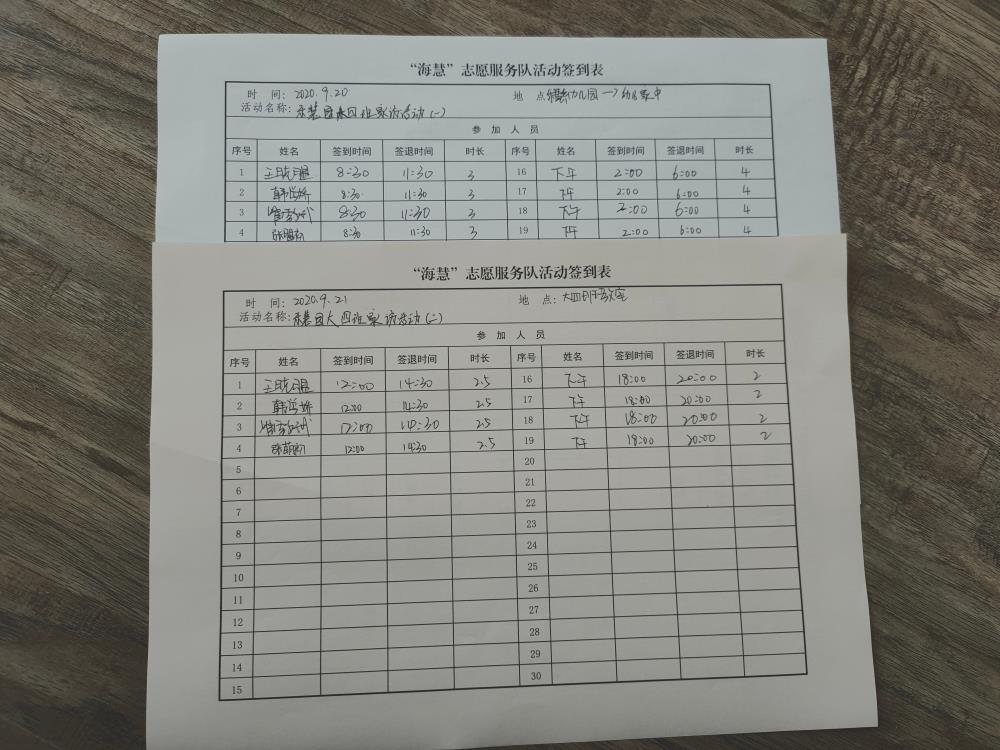 “海慧”志愿服务队活动签到表
时 间: 2020.9.20 地 点: 幼儿园 幼儿家中
活动名称: 慧园大四班家访活动(一)
参 加 人 员
序号 姓名 签到时间 签退时间 时长 序号 姓名 签到时间 签退时间 时长
1 8:30 11:30 3 16 下午 2:00 6:00 4
2 8:30 11:30 3 17 下午 2:00 6:00 4
3 8:30 11:30 3 18 下午 2:00 6:00 4
4 8:30 11:30 3 19 下午 2:00 6:00 4
“海慧”志愿服务队活动签到表
时 间: 2020.9.21 地 点: 大四班教室
活动名称: 慧园大四班家访活动(二)
参 加 人 员
序号 姓名 签到时间 签退时间 时长 序号 姓名 签到时间 签退时间 时长
1 12:00 14:30 2.5 16 下午 18:00 20:00 2
2 12:00 14:30 2.5 17 下午 18:00 20:00 2
3 12:00 14:30 2.5 18 下午 18:00 20:00 2
4 12:00 14:30 2.5 19 下午 18:00 20:00 2
5 20
6 21
7 22
8 23
9 24
10 25
11 26
12 27
13 28
14 29
15 30